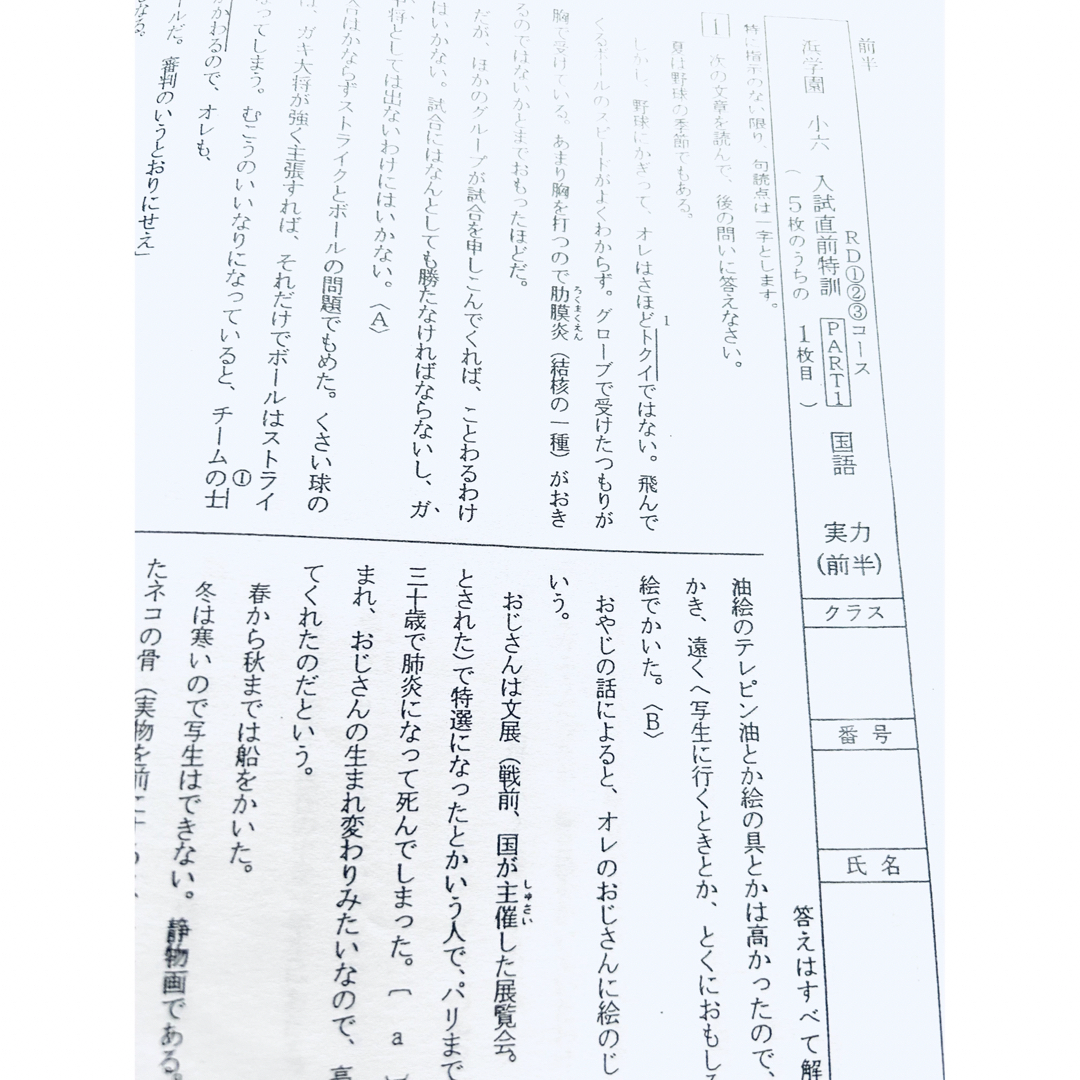 前半
RD①②③コース
浜学園 小六 入試直前特訓 PART1 国語 実力(前半) クラス 番号 氏名
(5枚のうちの 1枚目)
特に指示のない限り、句読点は一字とします。
答えはすべて解
1 次の文章を読んで、後の問いに答えなさい。
夏は野球の季節でもある。
しかし、野球にかぎって、オレはさほどトクイではない。飛んで
1
くるボールのスピードがよくわからず。グローブで受けたつもりが
胸で受けている。あまり胸を打つので肋膜炎(結核の一種)がおき
ろくまくえん
るのではないかとまでおもったほどだ。
だが、ほかのグループが試合を申しこんでくれば、ことわるわけ
はいかない。試合にはなんとしても勝たなければならないし、ガ、
将としては出ないわけにはいかない。〈A〉
合はかならずストライクとボールの問題でもめた。くさい球の
、ガキ大将が強く主張すれば、それだけでボールはストライ
ってしまう。むこうのいいなりになっていると、チームの士
①
かかわるので、オレも、
審判のいうとおりにせえ」
油絵のテレピン油とか絵の具とかは高かったので、
かき、遠くへ写生に行くときとか、とくにおもしろ
絵でかいた。〈B〉
おやじの話によると、オレのおじさんに絵のじ
いう。
おじさんは文展(戦前、国が主催した展覧会。
しゅさい
とされた)で特選になったとかいう人で、パリまで
三十歳で肺炎になって死んでしまった。〔 a 〕
まれ、おじさんの生まれ変わりみたいなので、高
てくれたのだという。
春から秋までは船をかいた。
冬は寒いので写生はできない。静物画である。
たネコの骨(実物を前に